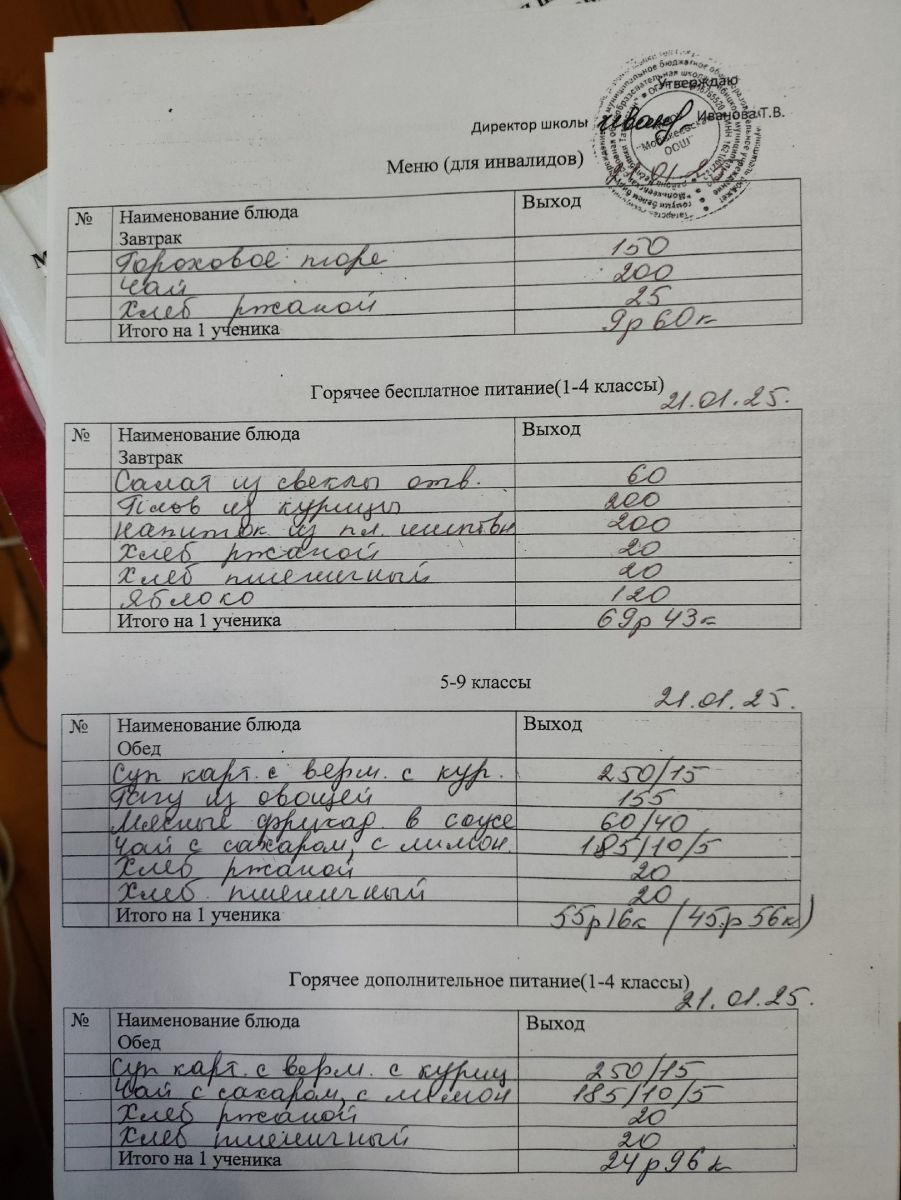 Утверждаю
Директор школы Иванова Т.В.
Меню (для инвалидов)
№ Наименование блюда Выход
Завтрак
Гороховое пюре 150
Чай 200
Хлеб ржаной 25
Итого на 1 ученика 9р 60к
Горячее бесплатное питание(1-4 классы)
21.01.25.
№ Наименование блюда Выход
Завтрак
Салат из свеклы отв. 60
Плов из курицы 200
Напиток из пл. шиповн 200
Хлеб ржаной 20
Хлеб пшеничный 20
Яблоко 120
Итого на 1 ученика 69р 43к
5-9 классы
21.01.25.
№ Наименование блюда Выход
Обед
Суп карт. с верм. с кур. 250/15
Рагу из овощей 155
Мясные фрикад. в соусе 60/40
Чай с сахаром, с лимон. 185/10/5
Хлеб ржаной 20
Хлеб пшеничный 20
Итого на 1 ученика 55р16к (45р 56к)
Горячее дополнительное питание(1-4 классы)
21.01.25.
№ Наименование блюда Выход
Обед
Суп карт. с верм. с куриц 250/15
Чай с сахаром, с лимон 185/10/5
Хлеб ржаной 20
Хлеб пшеничный 20
Итого на 1 ученика 24р96к